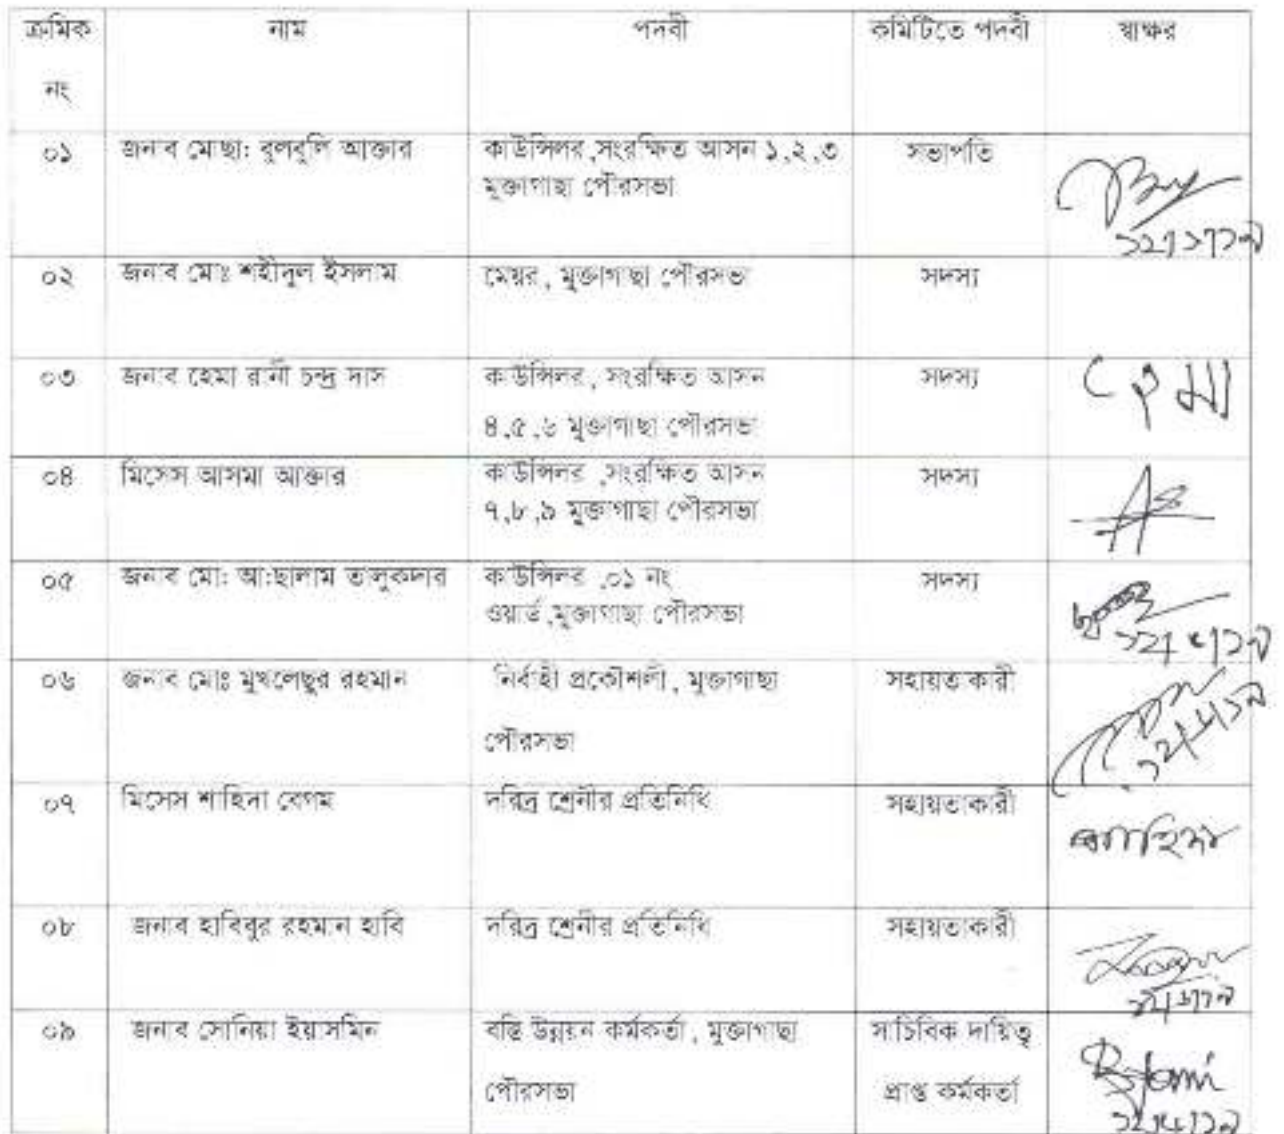 ক্রমিক নাম পদবী কমিটিতে পদবী স্বাক্ষর
নং
০১ জনাব মোছা: বুলবুলি আক্তার কাউন্সিলর,সংরক্ষিত আসন ১,২,৩ সভাপতি
মুক্তাগাছা পৌরসভা
০২ জনাব মোঃ শহীদুল ইসলাম মেয়র, মুক্তাগাছা পৌরসভা সদস্য
০৩ জনাব হেমা রানী চন্দ্র দাস কাউন্সিলর, সংরক্ষিত আসন সদস্য
৪,৫,৬ মুক্তাগাছা পৌরসভা
০৪ মিসেস আসমা আক্তার কাউন্সিলর ,সংরক্ষিত আসন সদস্য
৭,৮,৯ মুক্তাগাছা পৌরসভা
০৫ জনাব মো: আ:ছালাম তালুকদার কাউন্সিলর ,০১ নং সদস্য
ওয়ার্ড,মুক্তাগাছা পৌরসভা
০৬ জনাব মোঃ মুখলেছুর রহমান নির্বাহী প্রকৌশলী, মুক্তাগাছা সহায়তাকারী
পৌরসভা
০৭ মিসেস শাহিদা বেগম দরিদ্র শ্রেনীর প্রতিনিধি সহায়তাকারী
০৮ জনাব হাবিবুর রহমান হাবি দরিদ্র শ্রেনীর প্রতিনিধি সহায়তাকারী
০৯ জনাব সোনিয়া ইয়াসমিন বস্তি উন্নয়ন কর্মকর্তা, মুক্তাগাছা সাচিবিক দায়িত্ব
পৌরসভা প্রাপ্ত কর্মকর্তা